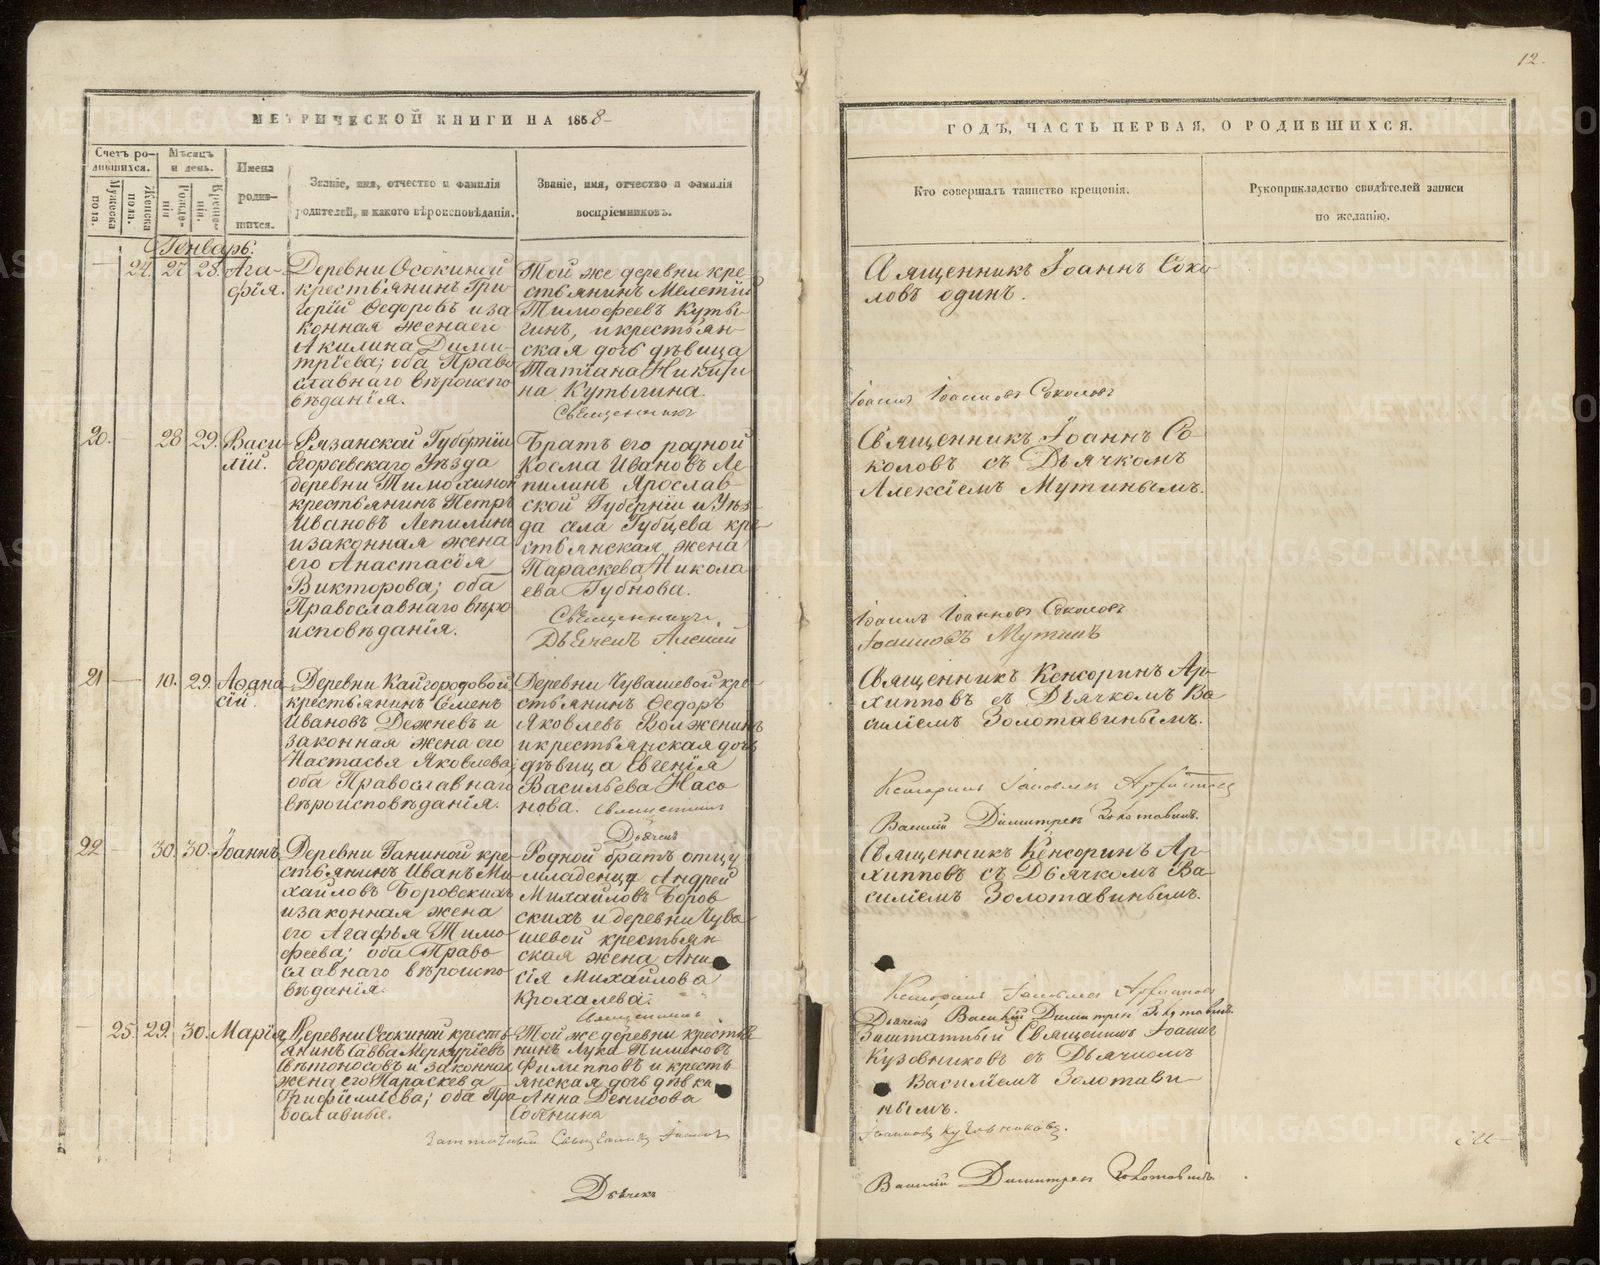 12.
МЕТРИЧЕСКОЙ КНИГИ НА 1858
ГОДЪ, ЧАСТЬ ПЕРВАЯ, О РОДИВШИХСЯ.
Счетъ ро-
дившихся.
Мужеска
пола.
Женска
пола.
Мѣсяцъ
и день.
Рожде-
нія
Креще-
нія.
Имена
родив-
шихся.
Званіе, имя, отчество и фамилія
родителей, и какого вѣроисповѣданія.
Званіе, имя, отчество и фамилія
воспріемниковъ.
Кто совершалъ таинство крещенія.
Рукоприкладство свидѣтелей записи
по желанію.
Генварь.
24. 27 28.
Ага-
фія.
Деревни Осокиной
крестьянинъ Гри-
горій Ѳедоровъ и за
конная жена его
Акилина Дими-
тріева; оба Право
славнаго вѣроиспо
вѣданія.
Той же деревни кре
стьянинъ Мелетій
Тимофеевъ Куты-
гинъ, и крестьян-
ская дочь дѣвица
Татіана Никити
на Кутыгина.
Священникъ
Священникъ Іоаннъ Соко
ловъ одинъ.
Іоаннъ Іоанновъ Соколовъ
20. 28 29.
Васи-
лій.
Рязанской Губерніи
Егорьевскаго Уѣзда
деревни Тимохиной
крестьянинъ Петръ
Ивановъ Лепилинъ
и законная жена
его Анастасія
Викторова; оба
Православнаго вѣро
исповѣданія.
Братъ его родной
Косма Ивановъ Ле-
пилинъ Ярослав-
ской Губерніи и Уѣз-
да села Губцева кре
стьянская жена
Параскева Никола
ева Губнова.
Священникъ
Дьячекъ Алексій
Священникъ Іоаннъ Со-
коловъ съ Дьячкомъ
Алексіемъ Мутинымъ.
Іоаннъ Іоанновъ Соколовъ
Іоанновъ Мутинъ
21 10. 29.
Аѳана
сій.
Деревни Кайгородовой
крестьянинъ Семенъ
Ивановъ Дежневъ и
законная жена его
Настасья Яковлева;
оба Православнаго
вѣроисповѣданія.
Деревни Чувашевой кре-
стьянинъ Ѳедоръ
Яковлевъ Волженинъ
и крестьянская дочь
дѣвица Евгенія
Васильева Насо
нова. Священникъ
Дьячекъ
Священникъ Кенсоринъ Ар-
хипповъ съ Дьячкомъ Ва
силіемъ Золотавинымъ.
Кенсоринъ Іаковлевъ Архипповъ
Василій Димитріевъ Золотавинъ.
22 30. 30.
Іоаннъ
Деревни Ганиной кре-
стьянинъ Иванъ Ми-
хайловъ Боровскихъ
и законная жена
его Агафья Тимо
феева; оба Право
славнаго вѣроиспо
вѣданія.
Родной братъ отцу
младенца Андрей
Михайловъ Боров
скихъ и деревни Чува
шевой крестьян-
ская жена Ани
сія Михайлова
Крохалева.
Священникъ
Священникъ Кенсоринъ Ар-
хипповъ съ Дьячкомъ Ва-
силіемъ Золотавинымъ.
Кенсоринъ Іаковлевъ Архипповъ
Дьячекъ Василій Димитріевъ Золотавинъ.
25. 29. 30.
Марія
Деревни Осокиной кресть-
янинъ Савва Меркуріевъ
Цвѣтоносовъ и законная
жена его Параскева
Трифилліева; оба Пра
вославные.
Той же деревни крестья
нинъ Лука Пименовъ
Филипповъ и кресть
янская дочь дѣвка
Анна Денисова
Собянина
Заштатный Священникъ Іоаннъ
Дьячекъ
Заштатный Священникъ Іоаннъ
Кузовниковъ съ Дьячкомъ
Василіемъ Золотави-
нымъ.
Іоанновъ Кузовниковъ.
Василій Димитріевъ Золотавинъ.
METRIKI.GASO-URAL.RU